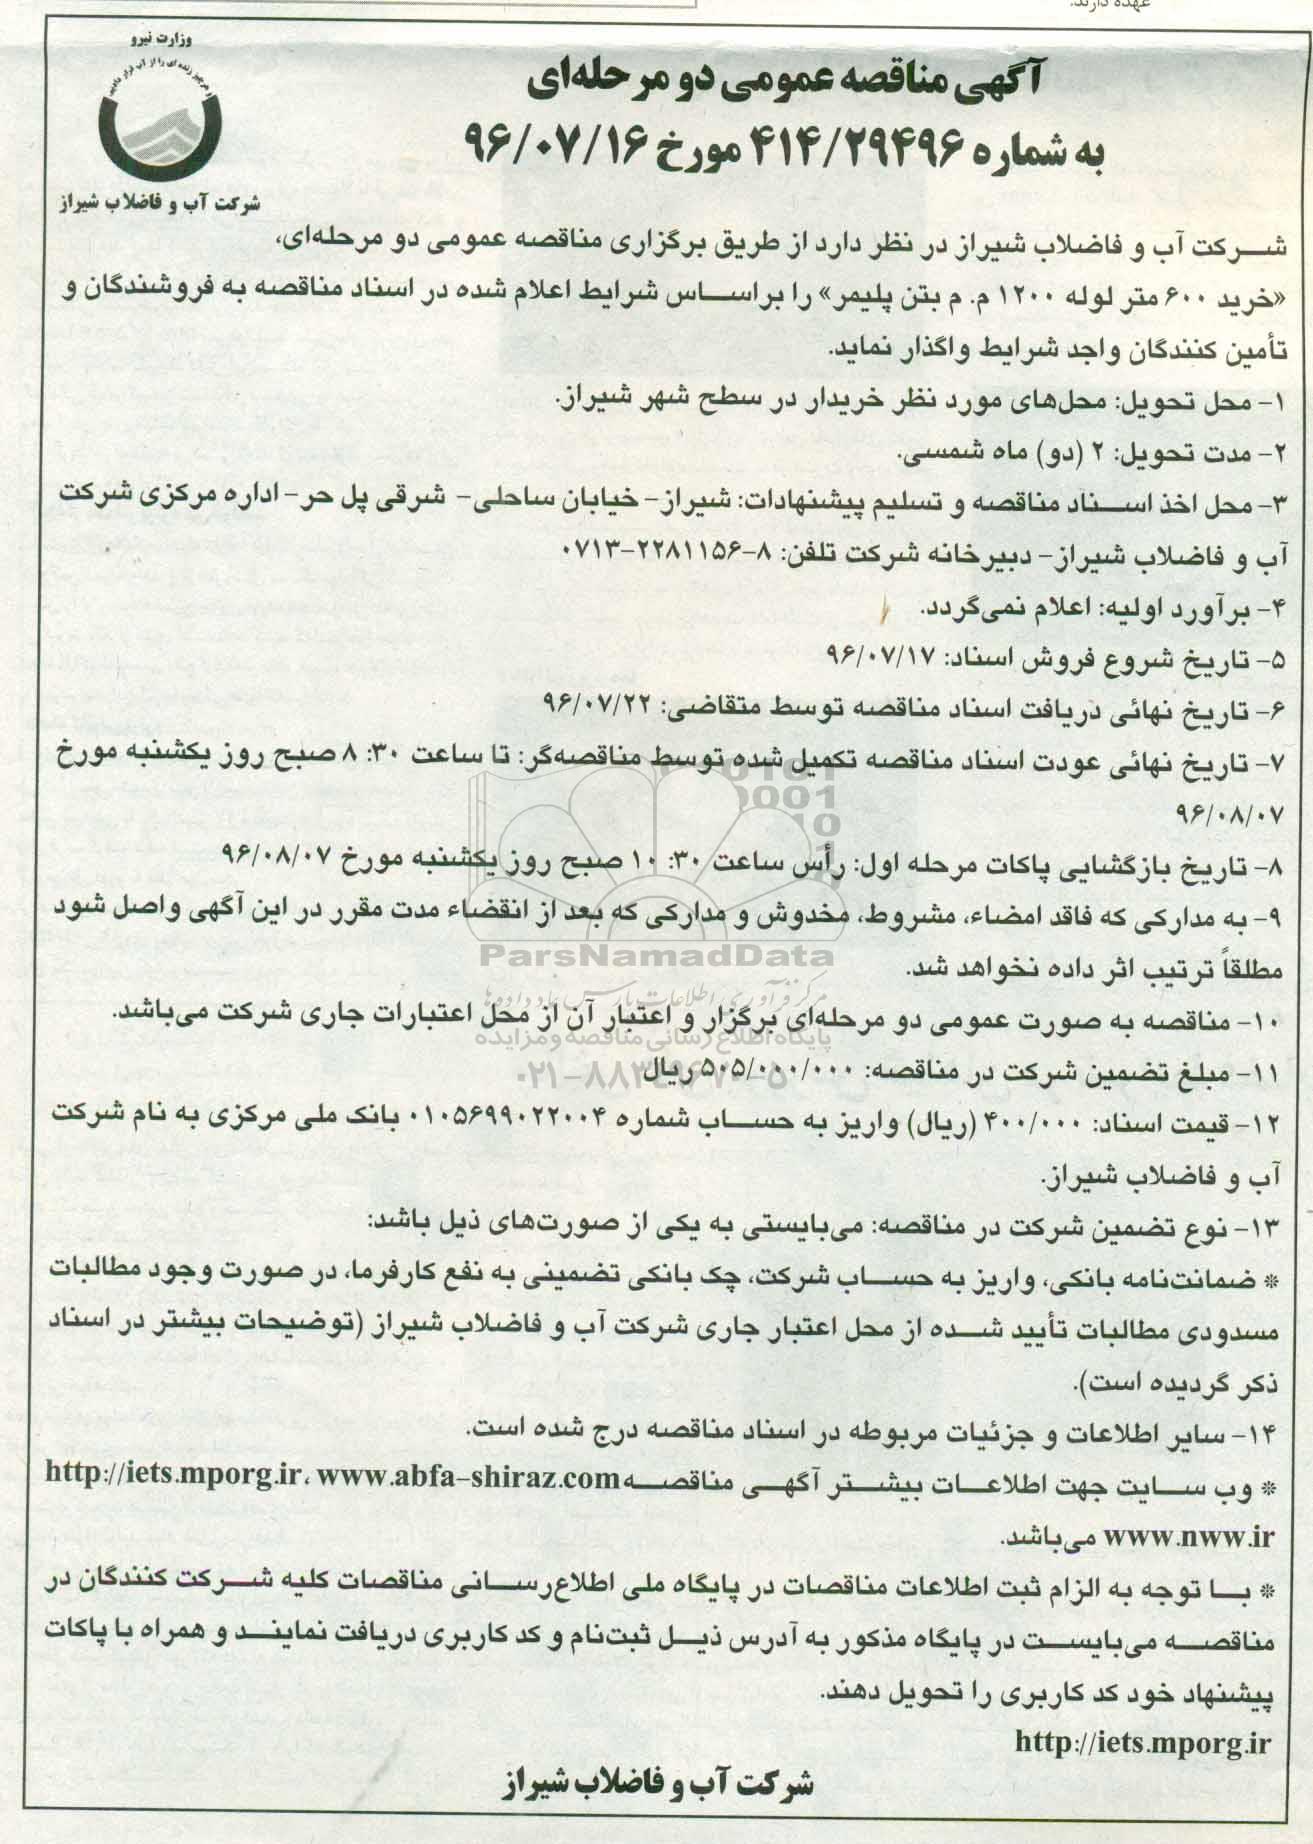 عهده دارند.
وزارت نیرو
شرکت آب و فاضلاب شیراز
آگهی مناقصه عمومی دو مرحله‌ای
به شماره ۴۱۴/۲۹۴۹۶ مورخ ۹۶/۰۷/۱۶
شرکت آب و فاضلاب شیراز در نظر دارد از طریق برگزاری مناقصه عمومی دو مرحله‌ای،
«خرید ۶۰۰ متر لوله ۱۲۰۰ م. م بتن پلیمر» را براساس شرایط اعلام شده در اسناد مناقصه به فروشندگان و
تأمین کنندگان واجد شرایط واگذار نماید.
۱- محل تحویل: محل‌های مورد نظر خریدار در سطح شهر شیراز.
۲- مدت تحویل: ۲ (دو) ماه شمسی.
۳- محل اخذ اسناد مناقصه و تسلیم پیشنهادات: شیراز- خیابان ساحلی- شرقی پل حر- اداره مرکزی شرکت
آب و فاضلاب شیراز- دبیرخانه شرکت تلفن: ۸-۲۲۸۱۱۵۶-۰۷۱۳
۴- برآورد اولیه: اعلام نمی‌گردد.
۵- تاریخ شروع فروش اسناد: ۹۶/۰۷/۱۷
۶- تاریخ نهائی دریافت اسناد مناقصه توسط متقاضی: ۹۶/۰۷/۲۲
۷- تاریخ نهائی عودت اسناد مناقصه تکمیل شده توسط مناقصه‌گر: تا ساعت ۳۰: ۸ صبح روز یکشنبه مورخ
۹۶/۰۸/۰۷
۸- تاریخ بازگشایی پاکات مرحله اول: رأس ساعت ۳۰: ۱۰ صبح روز یکشنبه مورخ ۹۶/۰۸/۰۷
۹- به مدارکی که فاقد امضاء، مشروط، مخدوش و مدارکی که بعد از انقضاء مدت مقرر در این آگهی واصل شود
ParsNamadData
مطلقاً ترتیب اثر داده نخواهد شد.
مرکز فرآوری اطلاعات پارس نماد داده‌ها
۱۰- مناقصه به صورت عمومی دو مرحله‌ای برگزار و اعتبار آن از محل اعتبارات جاری شرکت می‌باشد.
پایگاه اطلاع رسانی مناقصه و مزایده
۱۱- مبلغ تضمین شرکت در مناقصه: ۵۰۵/۰۰۰/۰۰۰ ریال
۱۲- قیمت اسناد: ۴۰۰/۰۰۰ (ریال) واریز به حساب شماره ۰۱۰۵۶۹۹۰۲۲۰۰۴ بانک ملی مرکزی به نام شرکت
آب و فاضلاب شیراز.
۱۳- نوع تضمین شرکت در مناقصه: می‌بایستی به یکی از صورت‌های ذیل باشد:
* ضمانت‌نامه بانکی، واریز به حساب شرکت، چک بانکی تضمینی به نفع کارفرما، در صورت وجود مطالبات
مسدودی مطالبات تأیید شده از محل اعتبار جاری شرکت آب و فاضلاب شیراز (توضیحات بیشتر در اسناد
ذکر گردیده است).
۱۴- سایر اطلاعات و جزئیات مربوطه در اسناد مناقصه درج شده است.
* وب سایت جهت اطلاعات بیشتر آگهی مناقصه http://iets.mporg.ir، www.abfa-shiraz.com
www.nww.ir می‌باشد.
* با توجه به الزام ثبت اطلاعات مناقصات در پایگاه ملی اطلاع‌رسانی مناقصات کلیه شرکت کنندگان در
مناقصه می‌بایست در پایگاه مذکور به آدرس ذیل ثبت‌نام و کد کاربری دریافت نمایند و همراه با پاکات
پیشنهاد خود کد کاربری را تحویل دهند.
http://iets.mporg.ir
شرکت آب و فاضلاب شیراز